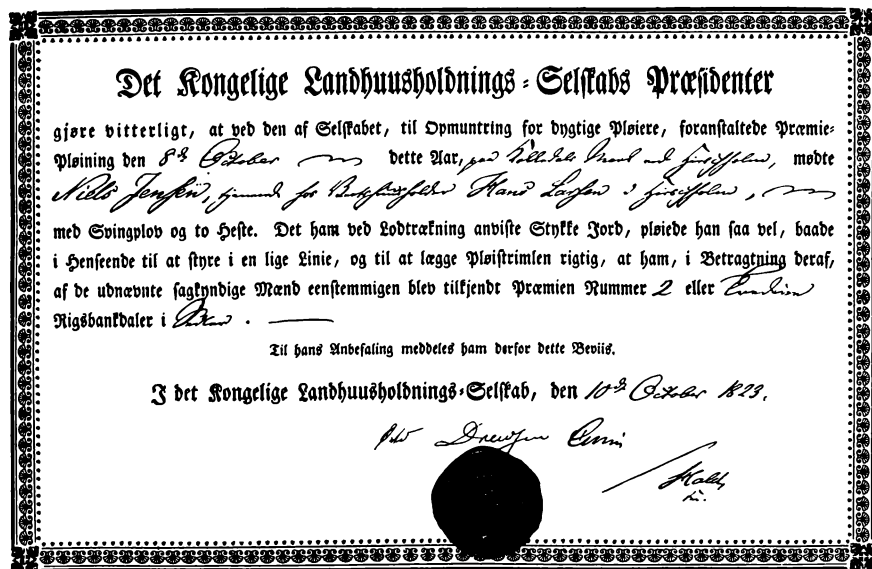 Det Kongelige Landhuusholdnings-Selskabs Præsidenter
gjøre vitterligt, at ved den af Selskabet, til Opmuntring for dygtige Pløiere, foranstaltede Præmie-
Pløining den 8de October dette Aar, paa Mark ved Hirschholm, mødte
Niels Jensen, tjenende hos Hans Larsen i Hirschholm,
med Svingplov og to Heste. Det ham ved Lodtrækning anviste Stykke Jord, pløiede han saa vel, baade
i Henseende til at styre i en lige Linie, og til at lægge Pløistrimlen rigtig, at ham, i Betragtning deraf,
af de udnævnte sagkyndige Mænd eenstemmigen blev tilkjendt Præmien Nummer 2 eller
Rigsbankdaler i
Til hans Anbefaling meddeles ham derfor dette Beviis.
I det Kongelige Landhuusholdnings-Selskab, den 10de October 1823.
Drewsen